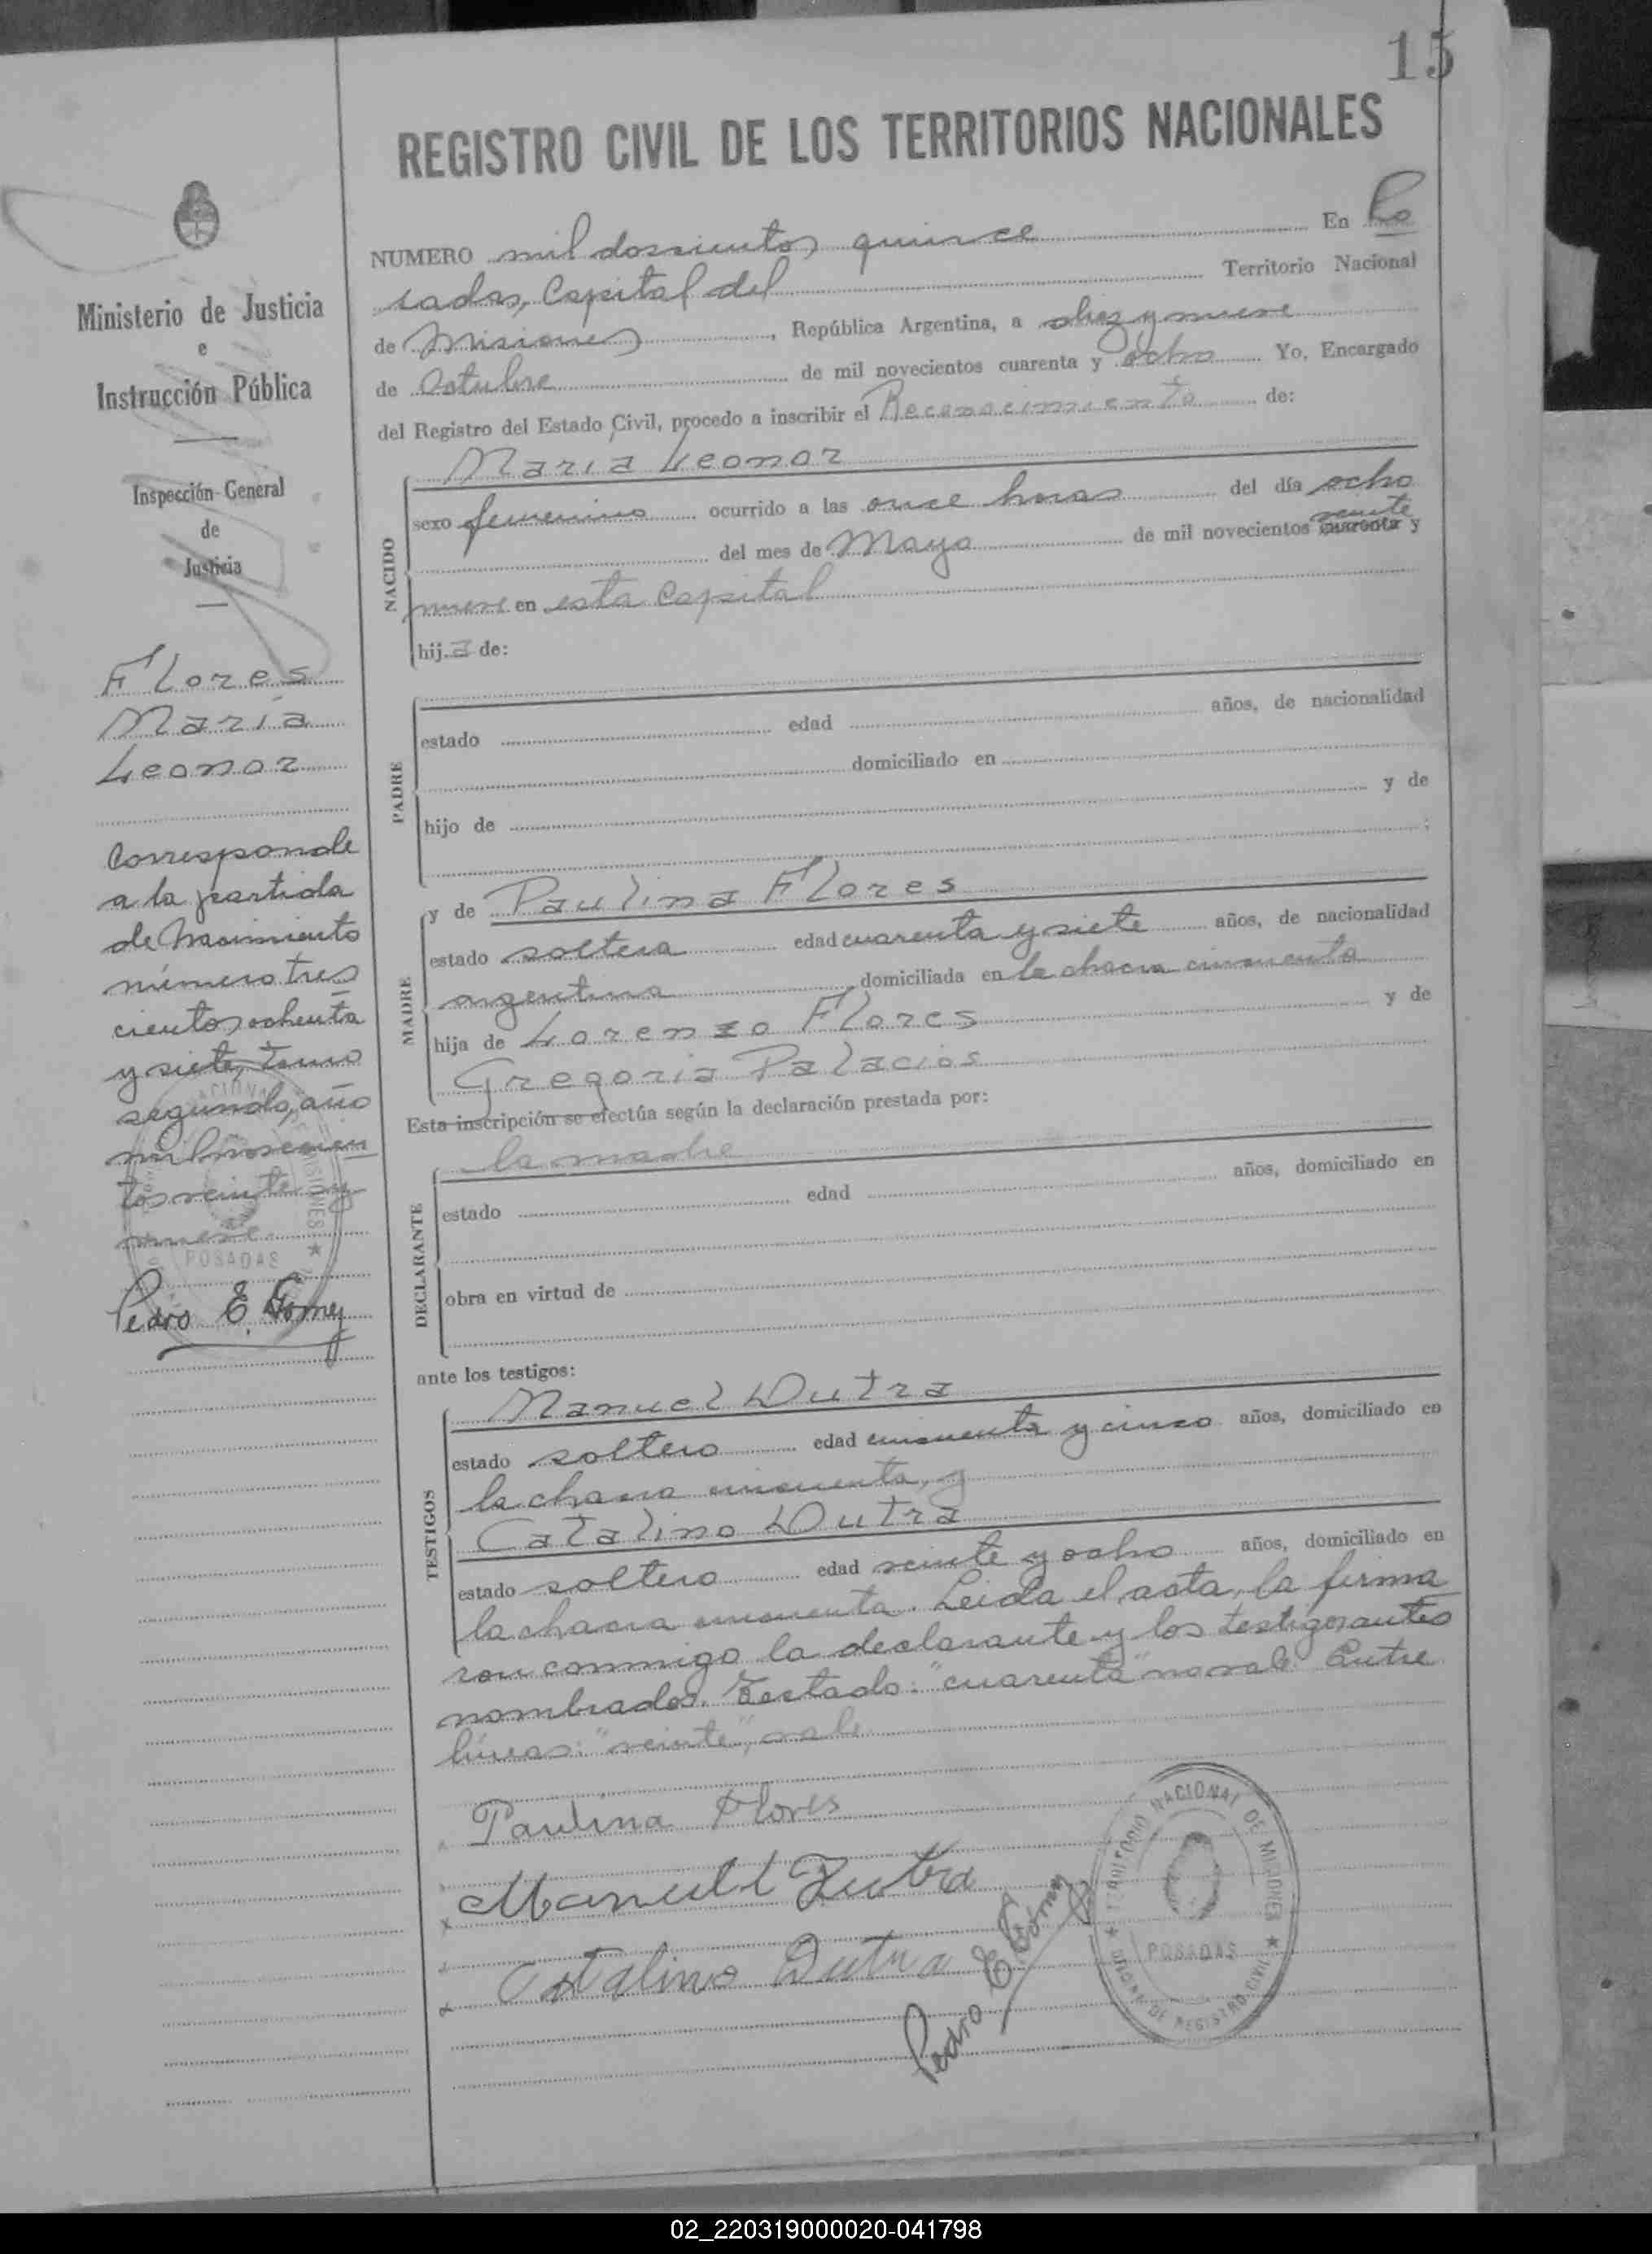 15
REGISTRO CIVIL DE LOS TERRITORIOS NACIONALES
NUMERO mil doscientos quince En Po
sadas, Capital del Territorio Nacional
de Misiones, República Argentina, a diez y nueve
de Octubre de mil novecientos cuarenta y ocho Yo, Encargado
del Registro del Estado Civil, procedo a inscribir el Reconocimiento de:
NACIDO
María Leonor
sexo femenino ocurrido a las once horas del día ocho
veinte
del mes de Mayo de mil novecientos cuarenta y
nueve en esta Capital
hija de:
PADRE
estado edad años, de nacionalidad
domiciliado en
hijo de y de
MADRE
y de Paulina Flores
estado soltera edad cuarenta y siete años, de nacionalidad
argentina domiciliada en la chacra cincuenta
hija de Lorenzo Flores y de
Gregoria Palacios
Esta inscripción se efectúa según la declaración prestada por:
DECLARANTE
la madre
estado edad años, domiciliado en
obra en virtud de
ante los testigos:
TESTIGOS
Manuel Dutra
estado soltero edad cincuenta y cinco años, domiciliado en
la chacra cincuenta, y
Catalino Dutra
estado soltero edad veinte y ocho años, domiciliado en
la chacra cincuenta. Leida el acta, la firma
ron conmigo la declarante y los testigos antes
nombrados. Testado: "cuarenta" no vale. Entre
líneas: "veinte", vale
Paulina Flores
Manuel Dutra
Catalino Dutra
Pedro E. Gómez
TERRITORIO NACIONAL DE MISIONES
POSADAS
OFICINA DE REGISTRO CIVIL
Ministerio de Justicia
e
Instrucción Pública
Inspección General
de
Justicia
Flores
María
Leonor
Corresponde
a la partida
de Nacimiento
número tres
cientos ochenta
y siete, tomo
segundo, año
mil novecien
tos veinte y
nueve.
POSADAS
Pedro E. Gomez
02_220319000020-041798